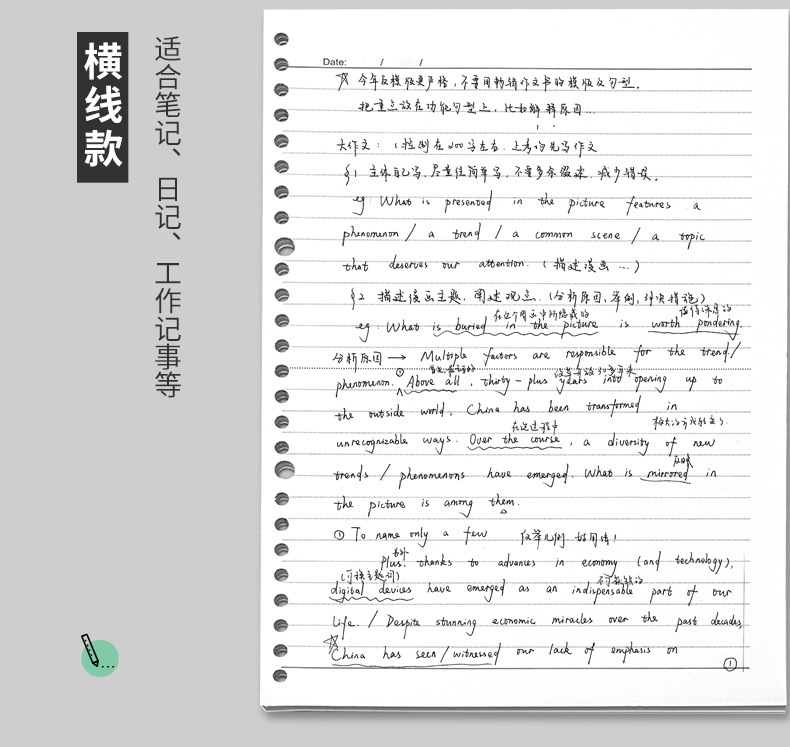 横线款
适合笔记、日记、工作记事等
Date: / /
☆ 今年反模版更严格，不要用畅销作文书的模版及句型。
把重点放在功能句型上，比如解释原因...
大作文：（控制在200字左右.上考场先写作文
§1 主体自己写，尽量往简单写，不要多余赘述.减少错误。
eg What is presented in the picture features a
phenomenon / a trend / a common scene / a topic
that deserves our attention.（描述漫画 ...）
§2 描述漫画主题，阐述观点.（分析原因,举例,解决措施）
在这个图画中所隐藏的 值得深思的
eg: What is buried in the picture is worth pondering.
分析原因 → Multiple factors are responsible for the trend/
首先.最主要的
phenomenon. ① Above all, thirty-plus years into opening up to
the outside world, China has been transformed in
在这过程中
unrecognizable ways. Over the course, a diversity of new
反映
trends / phenomenons have emerged. What is mirrored in
the picture is among them.
① To name only a few 仅举几例. 好用法！
另外
Plus, thanks to advances in economy (and technology),
(可换主题词) 不可或缺的
digital devices have emerged as an indispensable part of our
life. / Despite stunning economic miracles over the past decades,
☆ China has seen / witnessed our lack of emphasis on
①